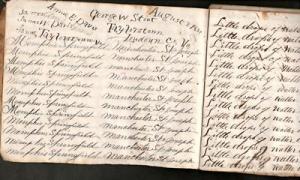 August
Anna E. Davis
George W. Stout
James Davis
Taylorstown
James
Loudoun Co. Va
Memphis Springfield Manchester St Joseph
Memphis Springfield Manchester St Joseph
Memphis Springfield Manchester St Joseph
Memphis Springfield Manchester St Joseph
Memphis Springfield Manchester St Joseph
Memphis Springfield Manchester St Joseph
Memphis Springfield Manchester St Joseph
Memphis Springfield Manchester St Joseph
Memphis Springfield Manchester St Joseph
Memphis Springfield Manchester St Joseph
Little drops of water
Little drops of water
Little drops of water
Little drops of water
Little drops of water
Little drops of water
Little drops of water
Little drops of water
Little drops of water
Little drops of water
Little drops of water
Little drops of water